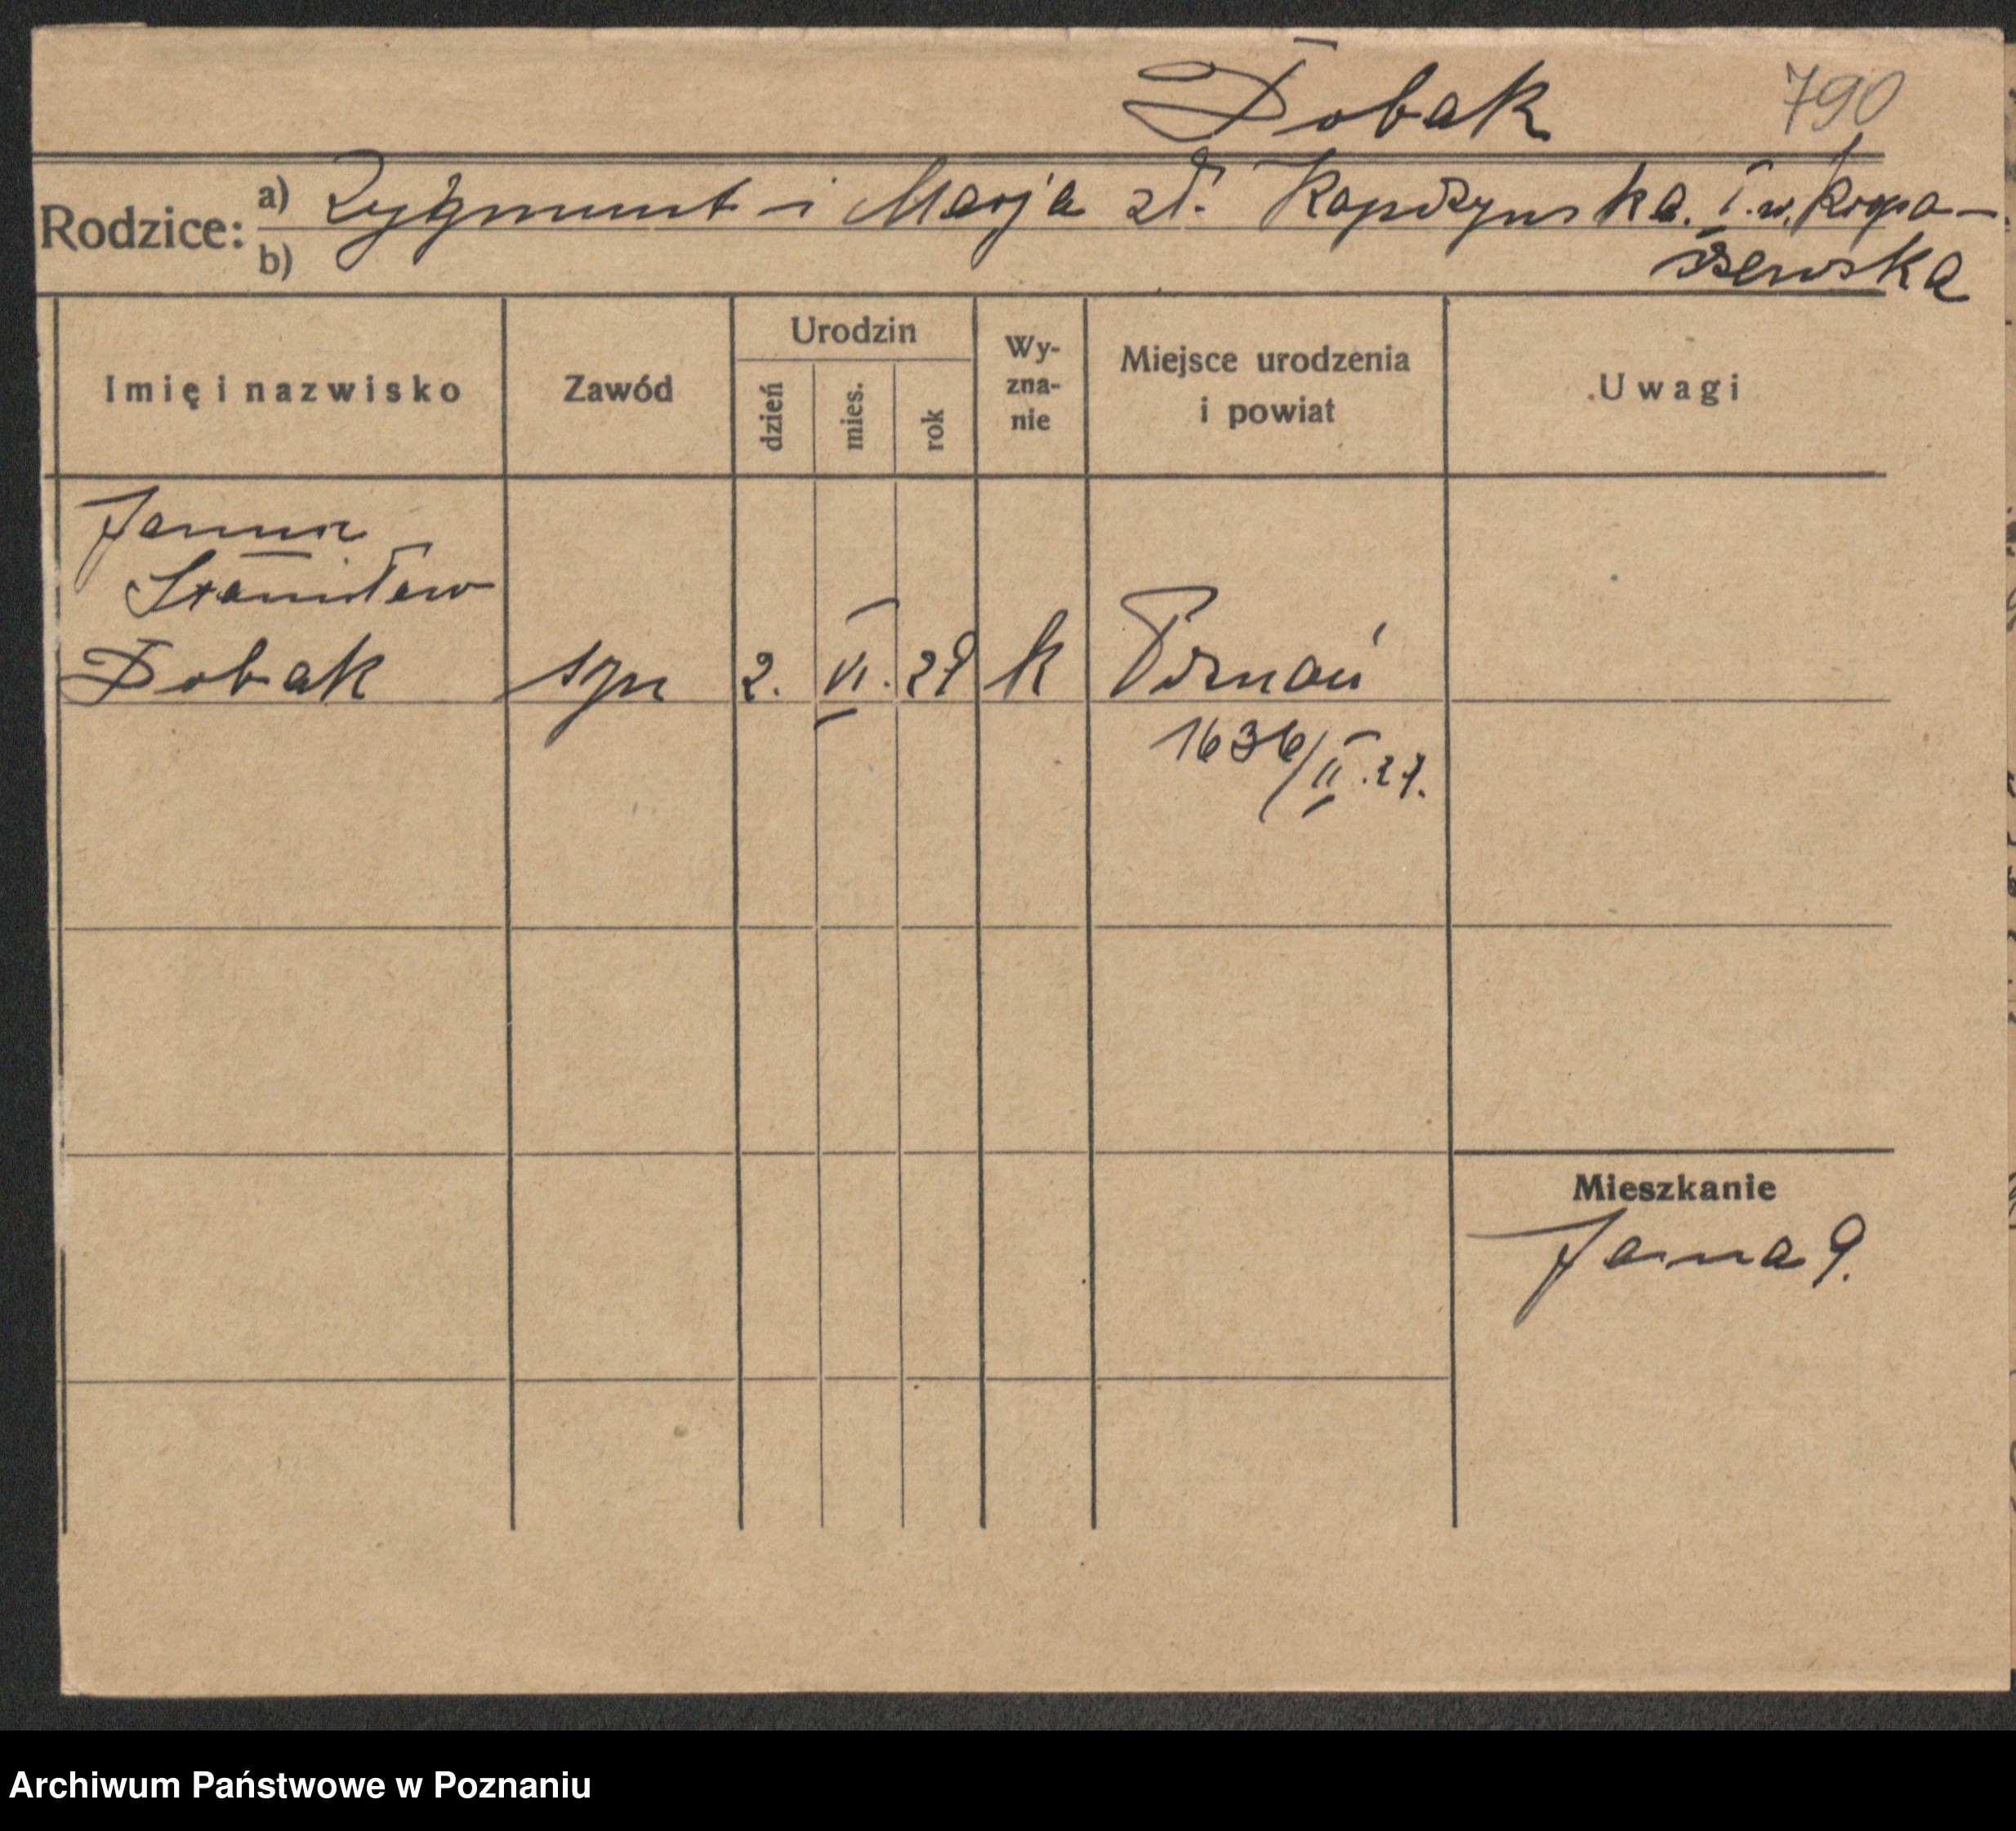 Dobak 790
Rodzice: a) Zygmunt i Marja zd. Kapczyńska. I. w. Kropa-
b) czewska
Imię i nazwisko Zawód Urodzin dzień mies. rok Wy-zna-nie Miejsce urodzenia i powiat Uwagi
Janusz
Stanisław
Dobak syn 2. VI. 29 k Poznań
1636/II.29.
Mieszkanie
Jana 9.
Archiwum Państwowe w Poznaniu